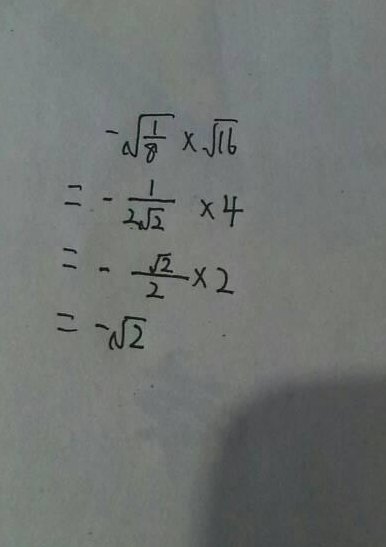 -√(1/8) × √16
= - 1/(2√2) × 4
= - √2/2 × 2
= -√2